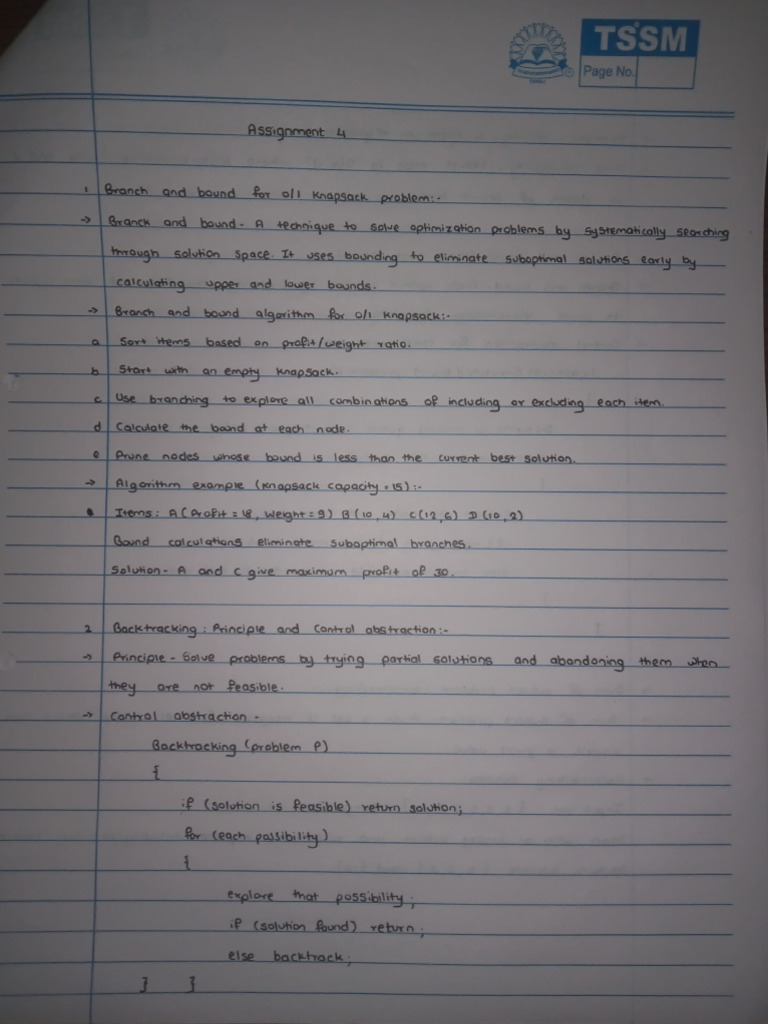 TSSM
Page No.
Assignment 4
1 Branch and bound for 0/1 knapsack problem:-
→ Branch and bound - A technique to solve optimization problems by systematically searching
through solution space. It uses bounding to eliminate suboptimal solutions early by
calculating upper and lower bounds.
→ Branch and bound algorithm for 0/1 knapsack:-
a Sort items based on profit/weight ratio.
b Start with an empty knapsack.
c Use branching to explore all combinations of including or excluding each item.
d Calculate the bound at each node.
e Prune nodes whose bound is less than the current best solution.
→ Algorithm example (knapsack capacity = 15):-
• Items: A (Profit = 18, Weight = 9) B (10, 4) C (12, 6) D (10, 2)
Bound calculations eliminate suboptimal branches.
Solution - A and C give maximum profit of 30.
2 Backtracking: Principle and Control abstraction:-
→ Principle - Solve problems by trying partial solutions and abandoning them when
they are not feasible.
→ Control abstraction -
Backtracking (problem P)
{
if (solution is feasible) return solution;
for (each possibility)
{
explore that possibility;
if (solution found) return;
else backtrack;
} }